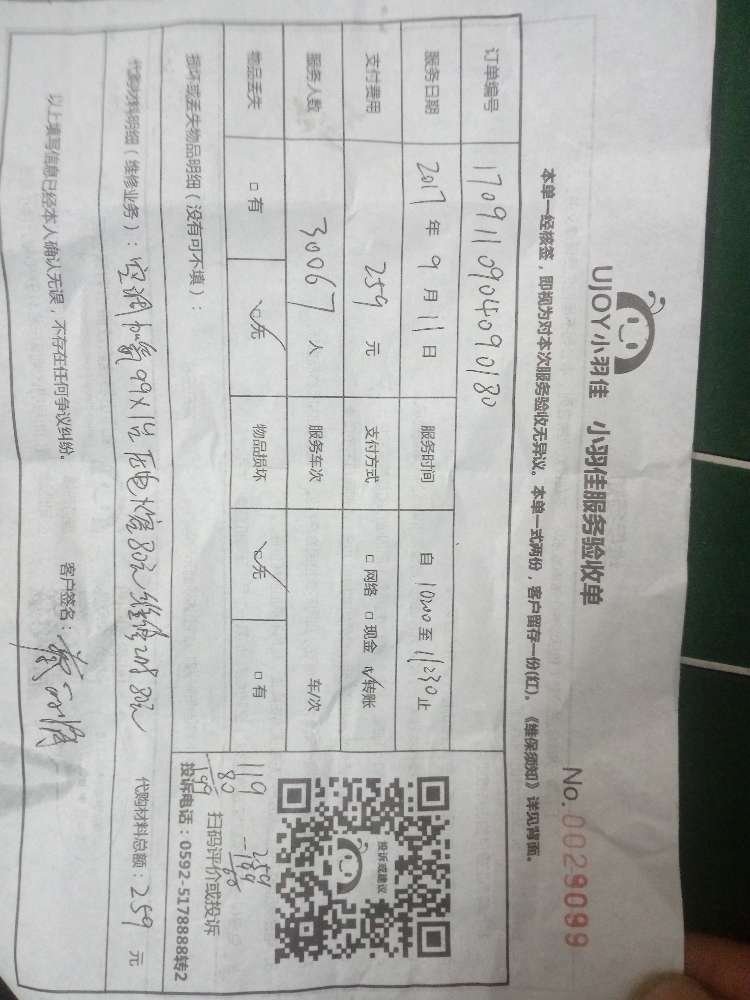 UJOY小羽佳 小羽佳服务验收单
No.0029099
本单一经核签，即视为对本次服务验收无异议。本单一式两份，客户留存一份(红)。《维保须知》详见背面。
订单编号 1709110904090180
服务日期 2017 年 9 月 11 日 服务时间 自 10:00 至 11:30 止
支付费用 259 元 支付方式 □ 网络 □ 现金 ☑ 转账
服务人数 30067 人 服务车次 车/次
物品丢失 □ 有 ☑ 无 物品损坏 ☑ 无 □ 有
投诉或建议
扫码评价或投诉
投诉电话：0592-5178888转2
119
80
199
损坏或丢失物品明细（没有可不填）：
代购材料明细（维修业务）：空调加氟99X1 80元 维修 80元 代购材料总额：259 元
以上填写信息已经本人确认无误，不存在任何争议纠纷。 客户签名：